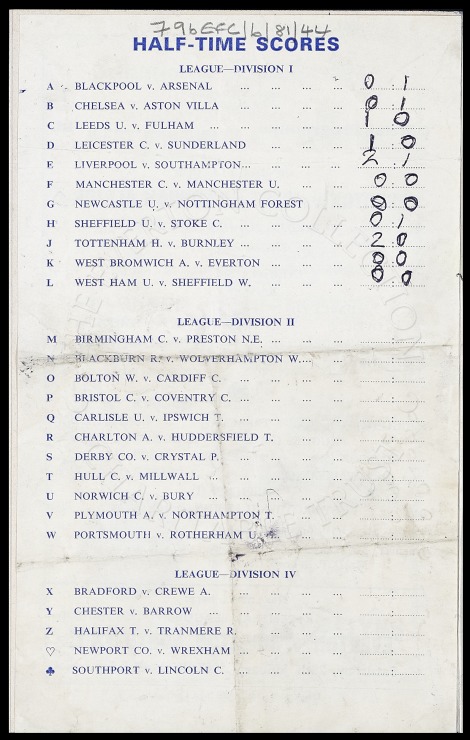 796EFC/6/81/44
HALF-TIME SCORES
LEAGUE—DIVISION I
A BLACKPOOL v. ARSENAL ... ... ... 0 : 1
B CHELSEA v. ASTON VILLA ... ... ... 0 : 1
C LEEDS U. v. FULHAM ... ... ... ... 1 : 0
D LEICESTER C. v. SUNDERLAND ... ... ... 1 : 0
E LIVERPOOL v. SOUTHAMPTON... ... ... ... 2 : 1
F MANCHESTER C. v. MANCHESTER U. ... ... 0 : 0
G NEWCASTLE U. v. NOTTINGHAM FOREST ... 0 : 0
H SHEFFIELD U. v. STOKE C. ... ... ... ... 0 : 1
J TOTTENHAM H. v. BURNLEY ... ... ... ... 2 : 0
K WEST BROMWICH A. v. EVERTON ... ... ... 0 : 0
L WEST HAM U. v. SHEFFIELD W. ... ... ... 0 : 0
LEAGUE—DIVISION II
M BIRMINGHAM C. v. PRESTON N.E. ... ... ...
N BLACKBURN R. v. WOLVERHAMPTON W.... ...
O BOLTON W. v. CARDIFF C. ... ... ... ...
P BRISTOL C. v. COVENTRY C. ... ... ... ...
Q CARLISLE U. v. IPSWICH T. ... ... ... ...
R CHARLTON A. v. HUDDERSFIELD T. ... ...
S DERBY CO. v. CRYSTAL P. ... ... ... ...
T HULL C. v. MILLWALL ... ... ... ... ...
U NORWICH C. v. BURY ... ... ... ... ...
V PLYMOUTH A. v. NORTHAMPTON T. ... ...
W PORTSMOUTH v. ROTHERHAM U. ... ... ...
LEAGUE—DIVISION IV
X BRADFORD v. CREWE A. ... ... ... ...
Y CHESTER v. BARROW ... ... ... ... ...
Z HALIFAX T. v. TRANMERE R. ... ... ...
♡ NEWPORT CO. v. WREXHAM ... ... ... ...
♣ SOUTHPORT v. LINCOLN C. ... ... ... ...